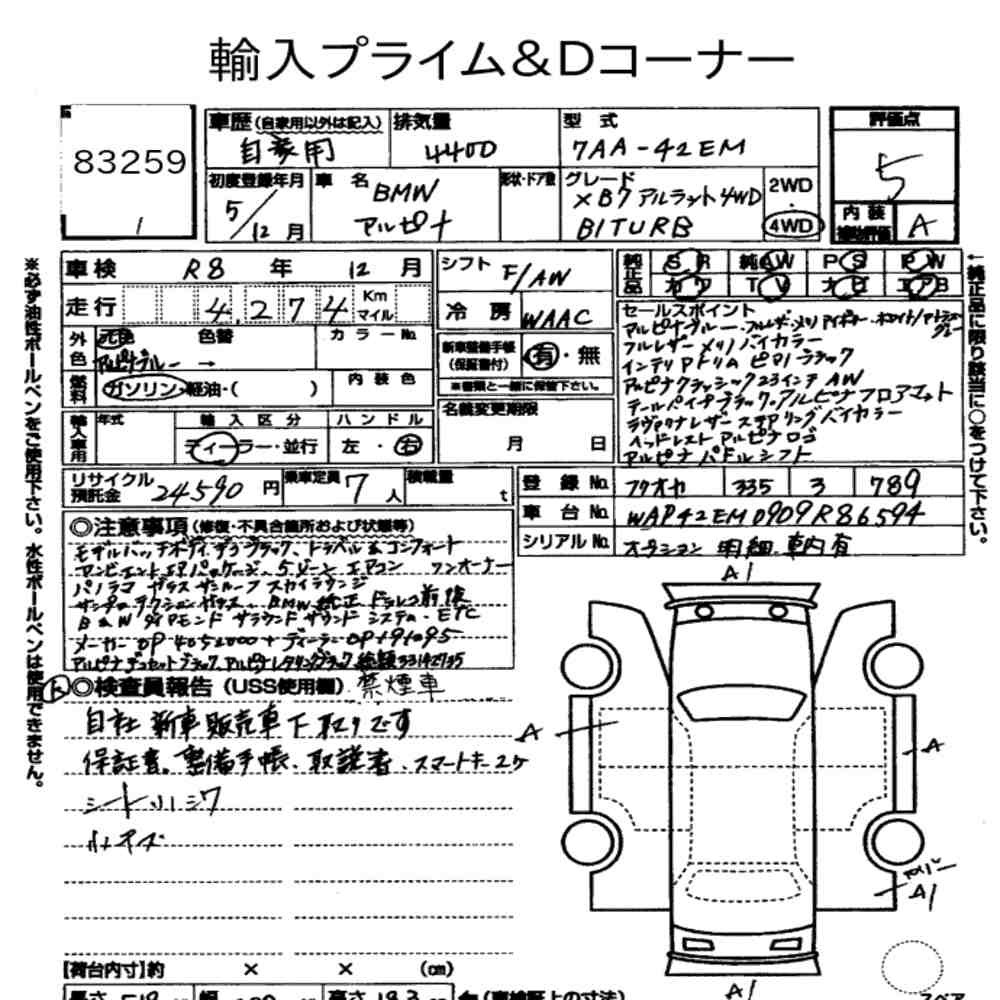 輸入プライム＆Dコーナー
83259
1
車歴（自家用以外は記入）
自家用
排気量
4400
型式
7AA-42EM
評価点
5
内装
補助評価
A
初度登録年月
5/12月
車名
BMW
アルピナ
形状・ドア数
グレード
XB7 アルラット 4WD
BITURB
2WD
・
4WD
車検 R8年 12月
走行 4,274 Km マイル
外色
元色
色替
カラーNo.
アルピナブルー→
燃料
ガソリン・軽油・( )
内装色
輸入車用
年式
輸入区分
ディーラー・並行
ハンドル
左・右
シフト F/AW
冷房 WAAC
新車整備手帳
(保証書付)
有・無
※書類と一緒に保管下さい。
名義変更期限
月 日
純正品
SR 純AW PS PW
カワ TV ナビ エアB
セールスポイント
フルレザーメリノバイカラー
アルピナクラッシック23インチAW
ラヴァリナレザーステアリングバイカラー
ヘッドレストアルピナロゴ
アルピナパドルシフト
←純正品に限り該当に○をつけて下さい。
※必ず油性ボールペンをご使用下さい。水性ボールペンは使用できません。
リサイクル
預託金
24590円
乗車定員 7人
積載量 t
登録No. フクオカ 335 ヲ 789
車台No. WAP42EM0909R86594
シリアルNo. オプション明細車内有
◎注意事項（修復・不具合箇所および状態等）
アンビエントエアパッケージ、5ゾーンエアコン ワンオーナー
パノラマガラスサンルーフスカイラウンジ
サンプロテクションガラス、BMW純正ドラレコ前後
B&Wダイヤモンドサラウンドサウンドシステム・ETC
メーカーOP 4052000+ディーラーOP
総額33142735
◎検査員報告（USS使用欄） 禁煙車
自社新車販売車下取りです
保証書、整備手帳、取説書、スマートキー2ケ
シートハンシワ
小キズ
A1
A
A
A1
A1
【荷台内寸】約 × × (cm)
長さ
幅
高さ 183
(車検証上の寸法)
スペア